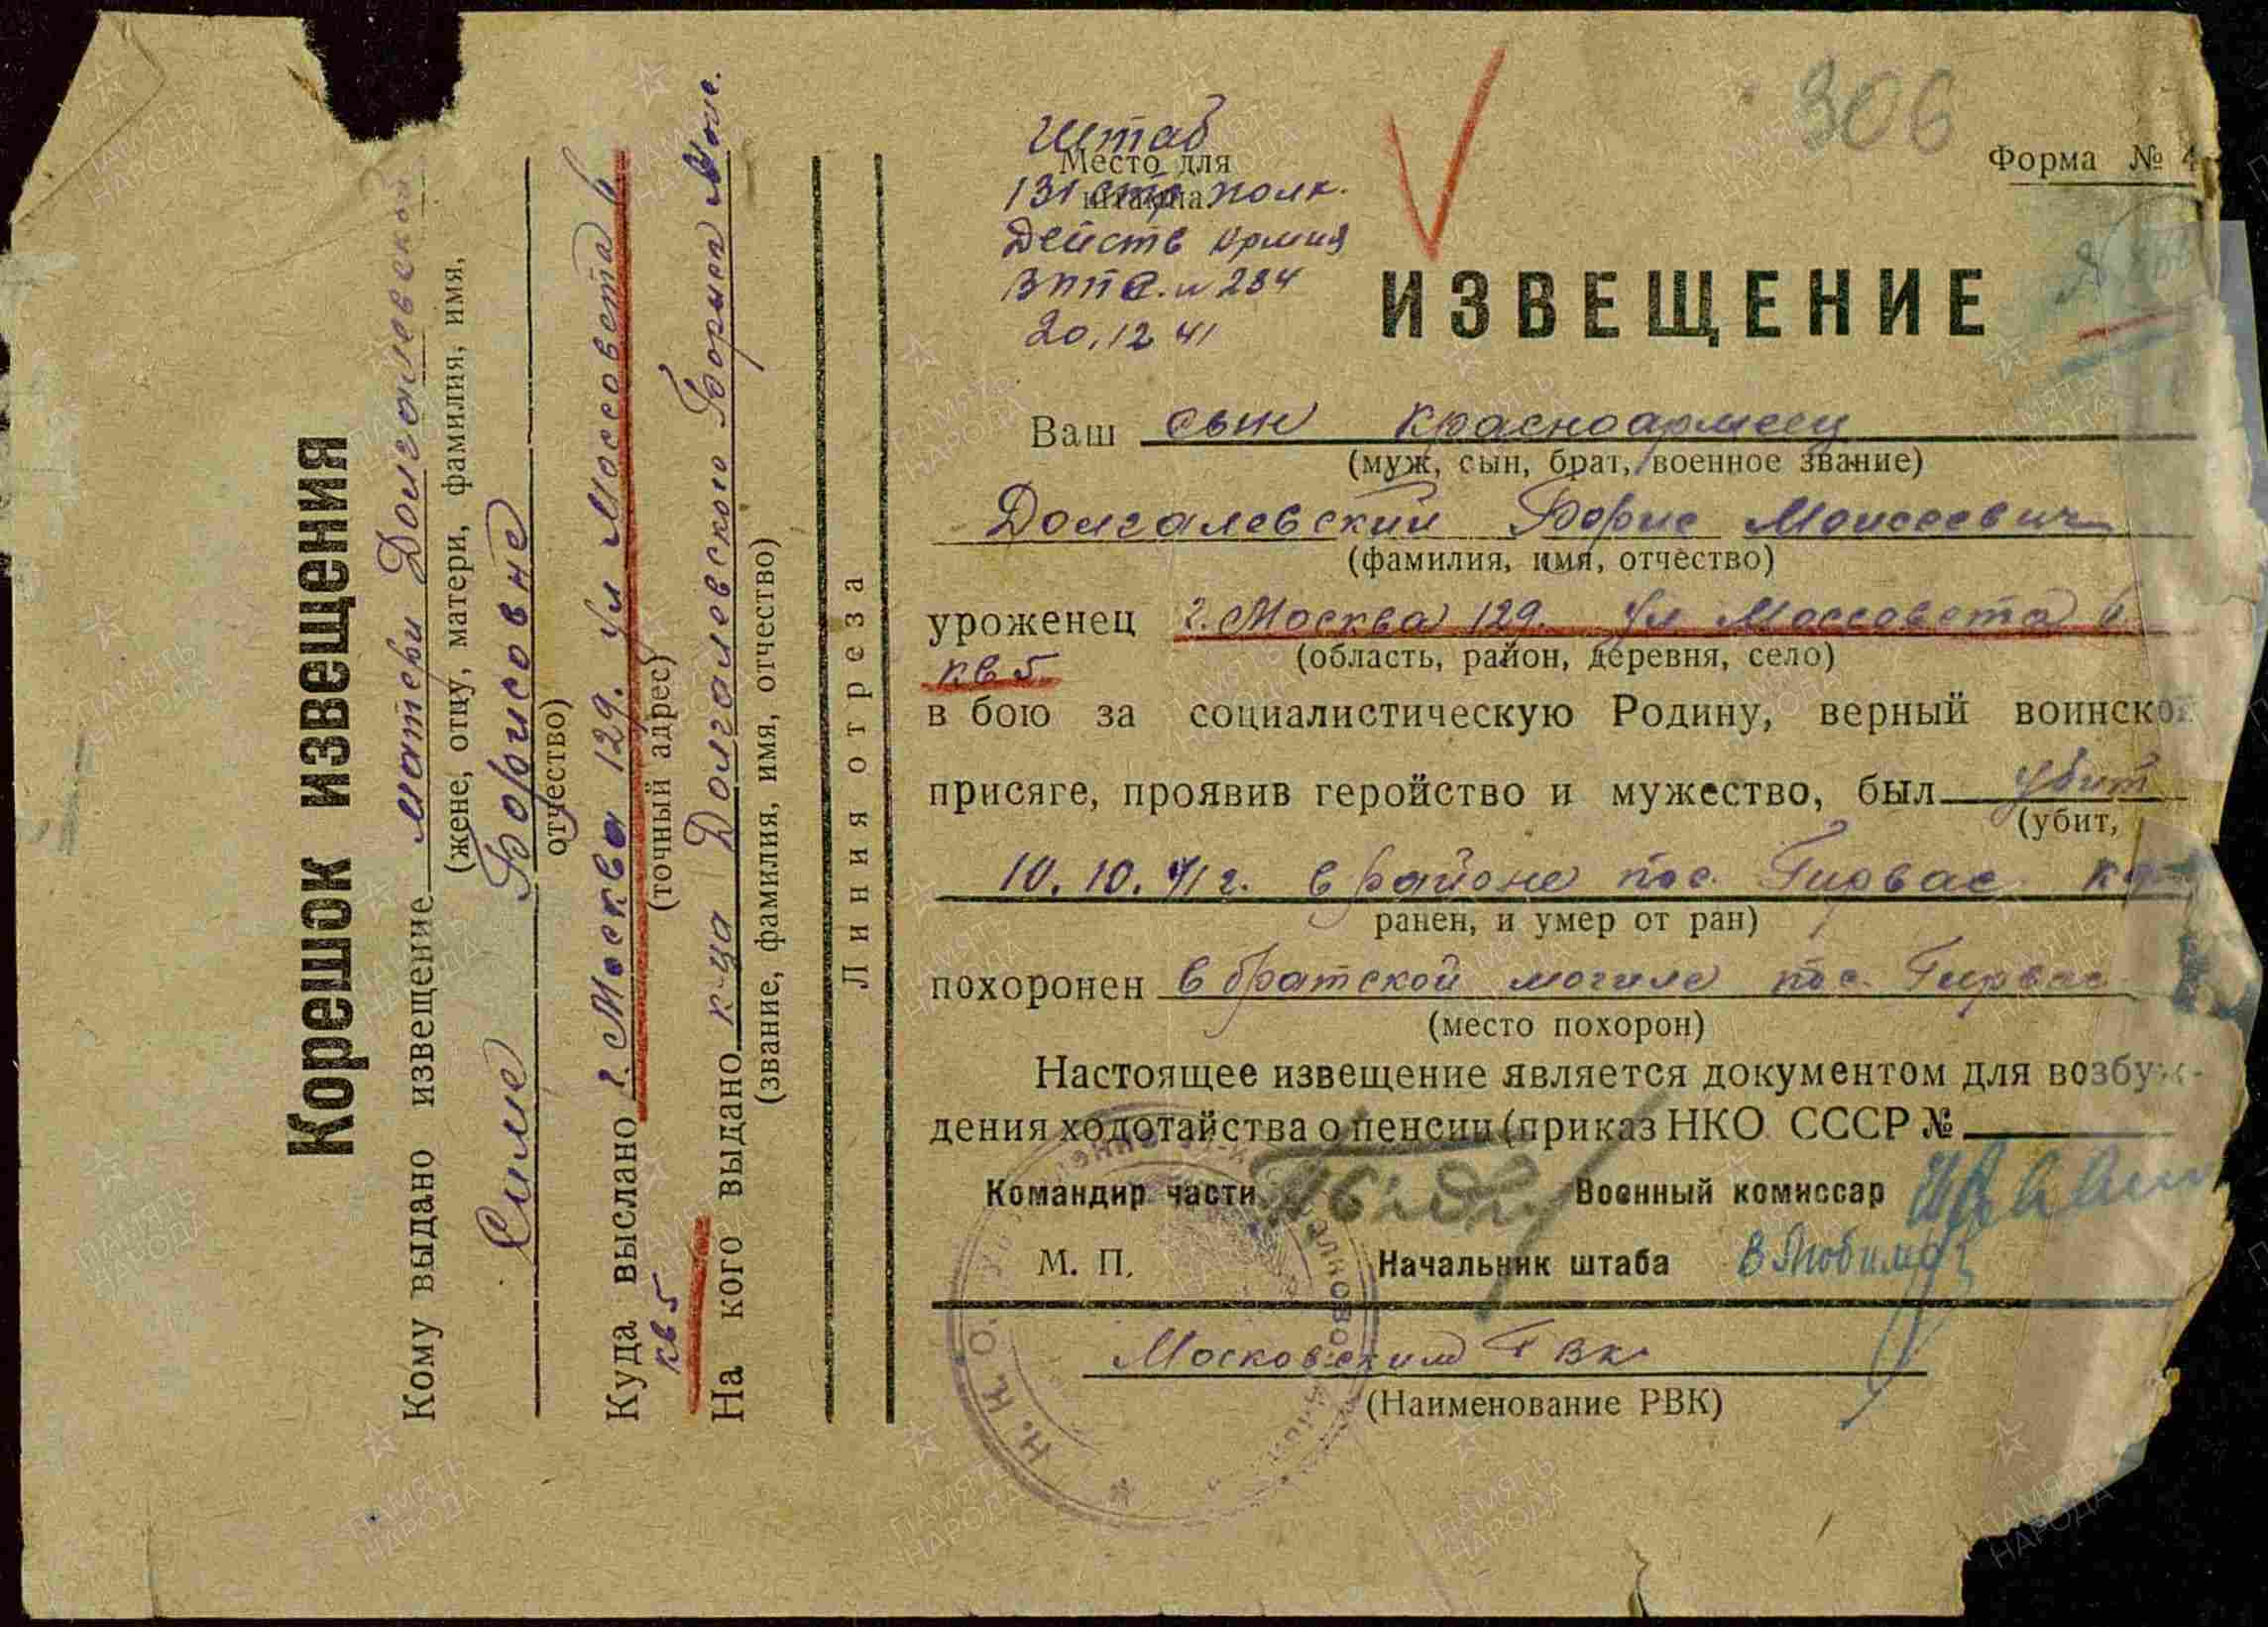 Корешок извещения
Кому выдано извещение матери Долгалевской
(жене, отцу, матери, фамилия, имя,
Симе Борисовне
отчество)
Куда выслано г. Москва 129. ул Моссовета 6
кв 5
(точный адрес)
На кого выдано к-ца Долгалевского Бориса Моис.
(звание, фамилия, имя, отчество)
Линия отреза
306
Форма № 4
Штаб
Место для
штампа
131 стр полк.
Действ Армия
ППС. н 234
20.12 41
ИЗВЕЩЕНИЕ
Ваш сын красноармеец
(муж, сын, брат, военное звание)
Долгалевский Борис Моисеевич
(фамилия, имя, отчество)
уроженец г. Москва 129. ул Моссовета 6
кв 5.
(область, район, деревня, село)
в бою за социалистическую Родину, верный воинской
присяге, проявив геройство и мужество, был убит
(убит,
10. 10. 41 г. в районе пос. Гирвас
ранен, и умер от ран)
похоронен в братской могиле пос. Гирвас
(место похорон)
Настоящее извещение является документом для возбуж-
дения ходотайства о пенсии (приказ НКО СССР №
Командир части
Военный комиссар
М. П.
Начальник штаба В Любимов
Московским ГВК
(Наименование РВК)
Н. К. О.
ПАМЯТЬ
НАРОДА